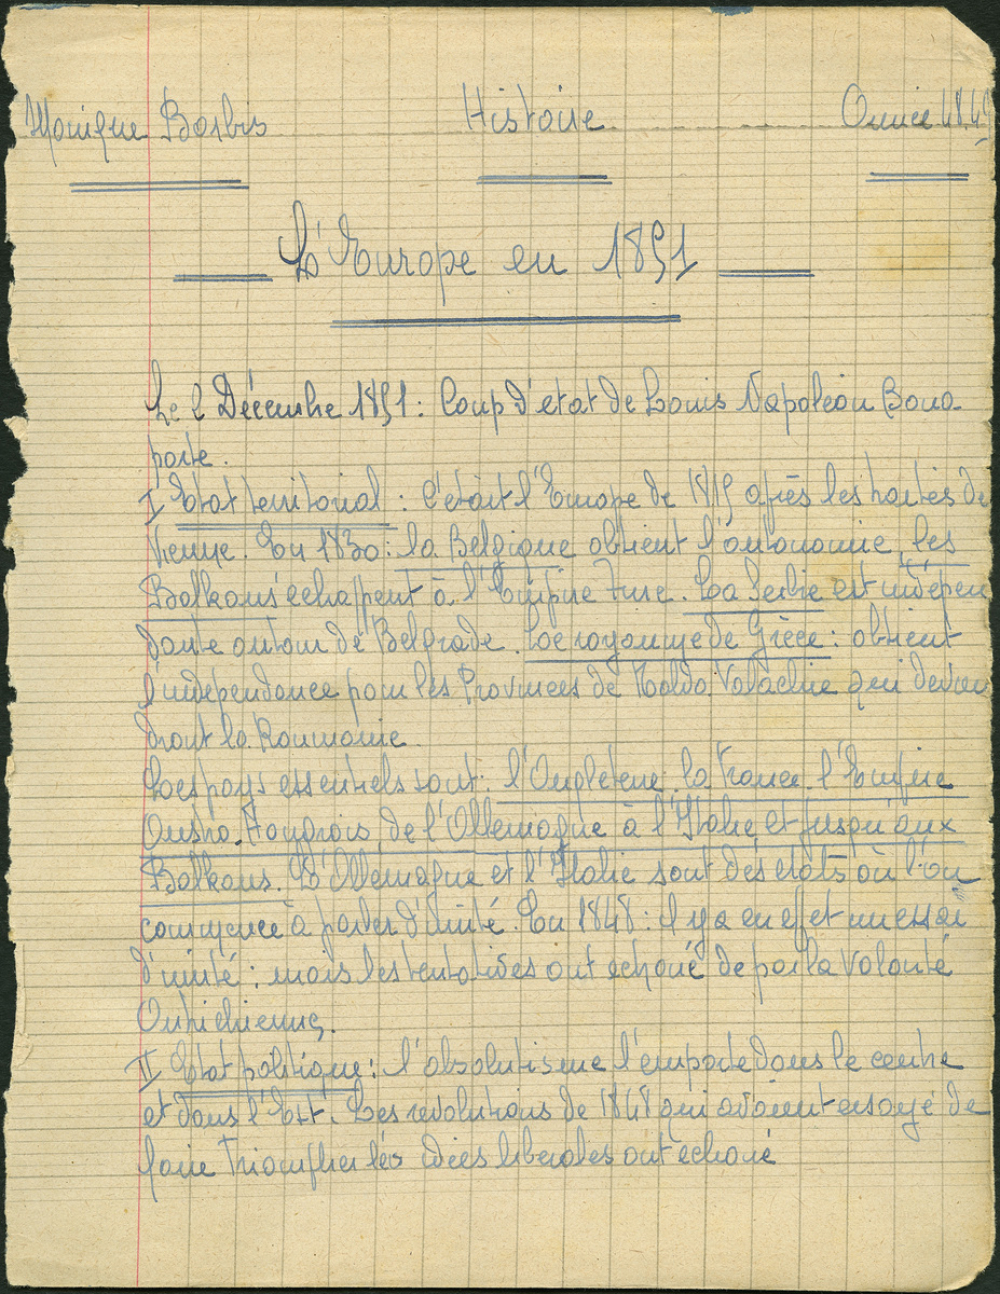 Monique Histoire Année 1849
L'Europe en 1851
Le 2 Décembre 1851 : Coup d'état de Louis Napoléon Bona-
parte.
I Etat territorial : C'était l'Europe de 1815 après les traités de
Vienne. En 1830 : la Belgique obtient l'autonomie, les
Balkans échappent à l'Empire Turc. La Serbie est indépen
dante autour de Belgrade. Le royaume de Grèce : obtient
l'indépendance pour les Provinces de Moldo Valachie qui devien
dront la Roumanie.
Les pays essentiels sont : l'Angleterre, la France, l'Empire
Austro-Hongrois, de l'Allemagne à l'Italie et jusqu'aux
Balkans. L'Allemagne et l'Italie sont des états où l'on
commence à parler d'unité. En 1848 : il y a en effet un essai
d'unité : mais les tentatives ont échoué de par la volonté
Autrichienne.
II Etat politique : l'absolutisme l'emporte dans le centre
et dans l'Est. Les révolutions de 1848 qui avaient essayé de
faire triompher les idées libérales ont échoué